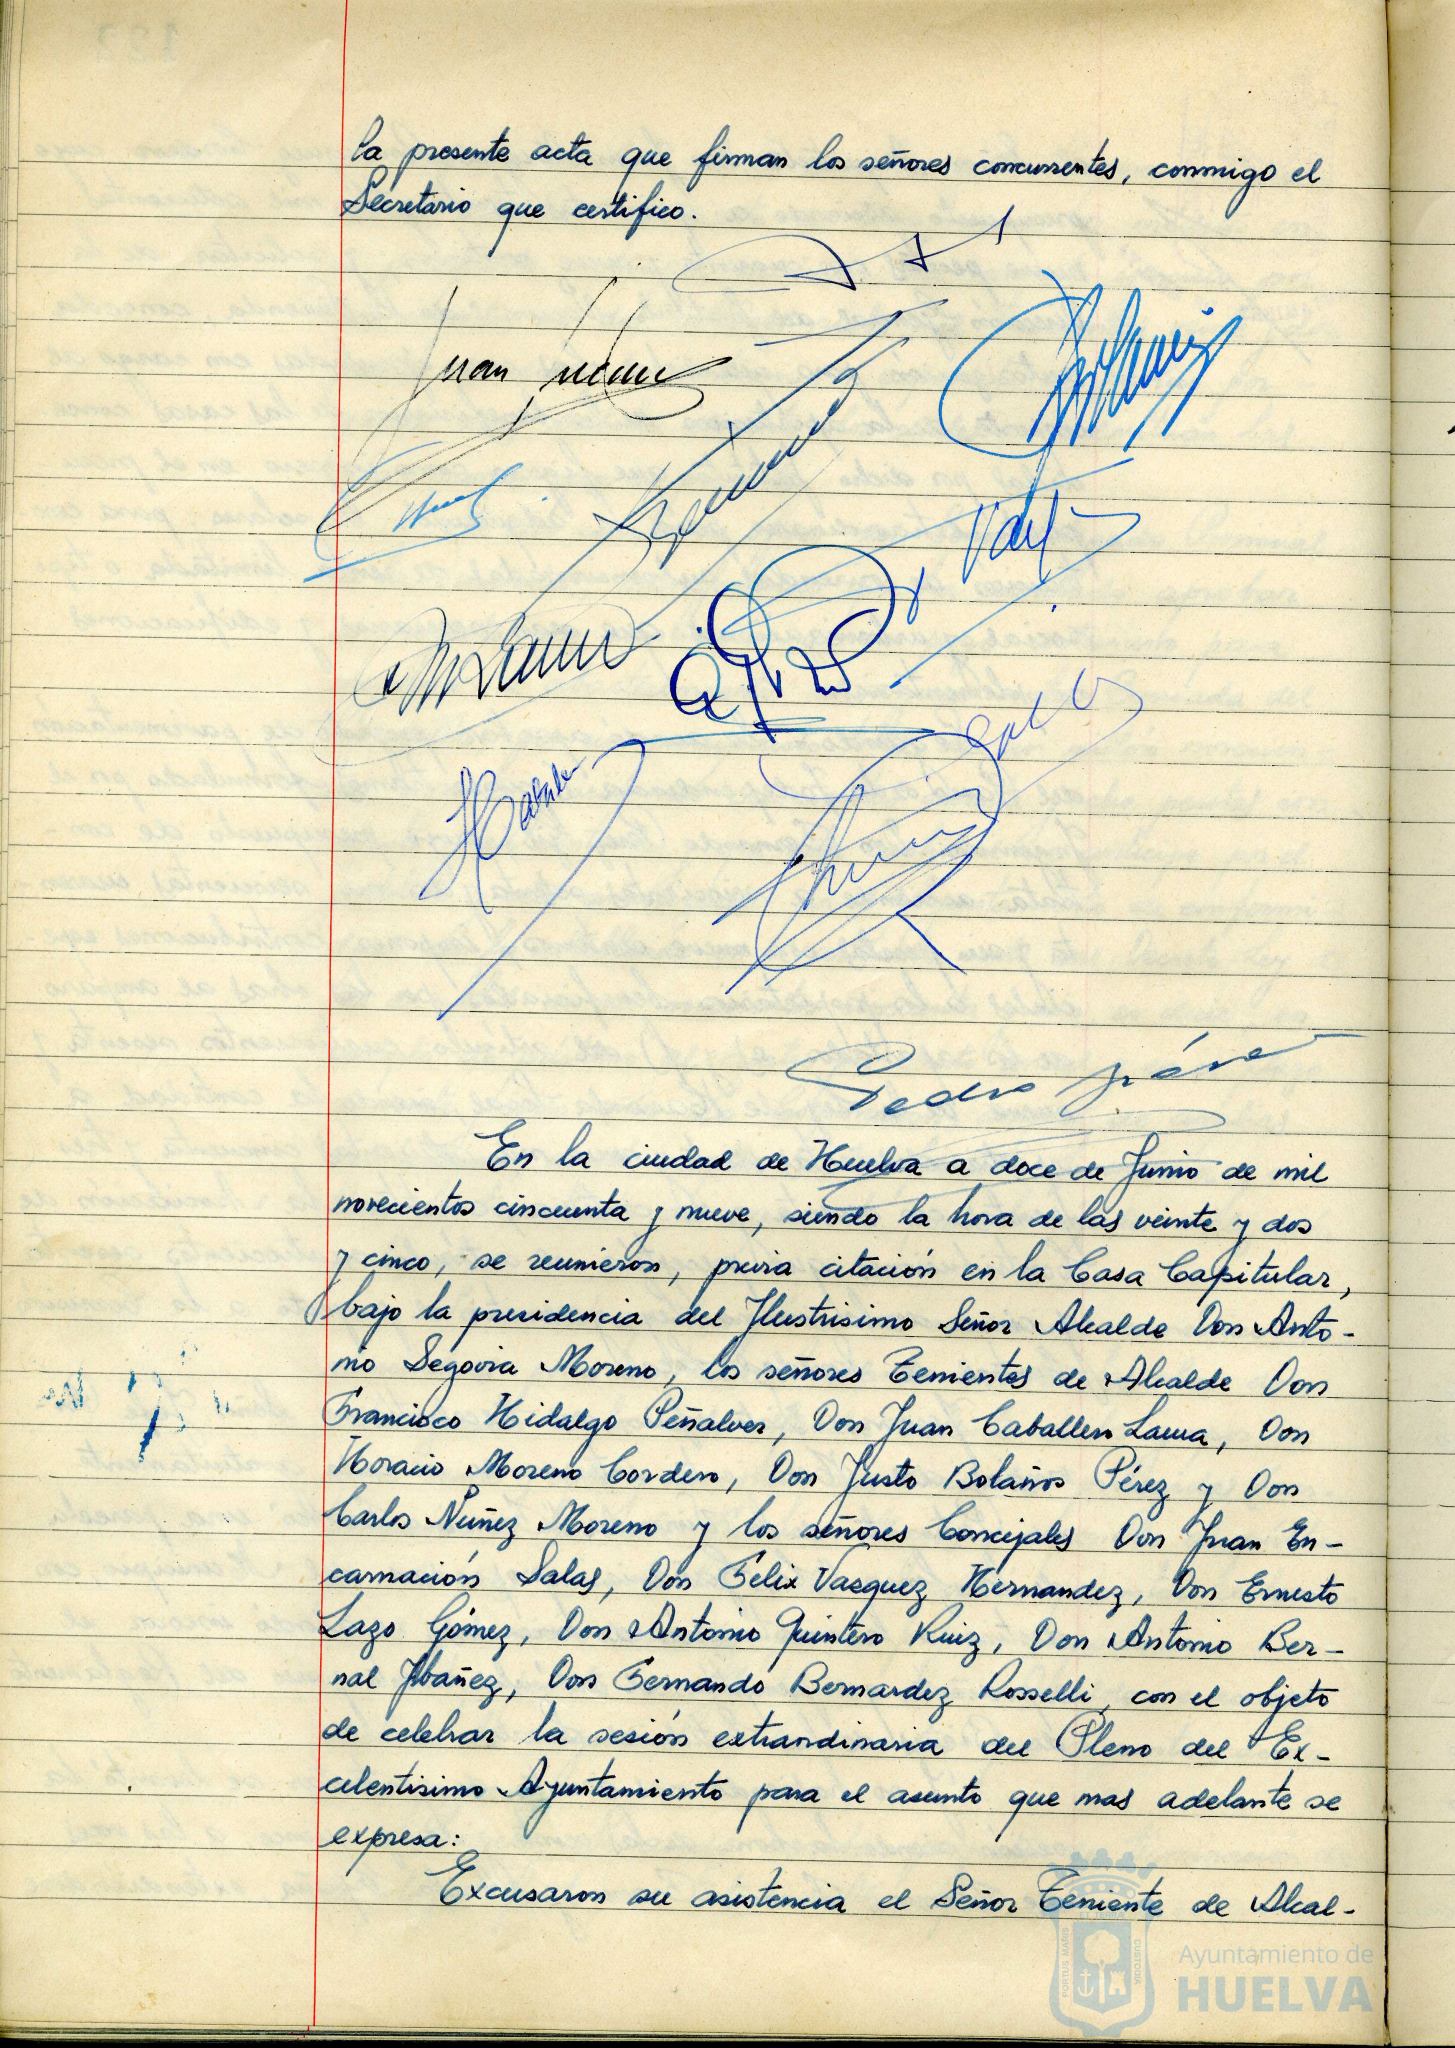 la presente acta que firman los señores concurrentes, conmigo el
Secretario que certifico.
Juan
Pedro
En la ciudad de Huelva a doce de Junio de mil
novecientos cincuenta y nueve, siendo la hora de las veinte y dos
y cinco, se reunieron, previa citación en la Casa Capitular,
bajo la presidencia del Ilustrisimo Señor Alcalde Don Anto-
nio Segovia Moreno, los señores Tenientes de Alcalde Don
Francisco Hidalgo Peñalver, Don Juan Caballero Lama, Don
Horacio Moreno Cordero, Don Justo Bolaños Pérez y Don
Carlos Núñez Moreno y los señores Concejales Don Juan En-
carnación Salas, Don Félix Vasquez Hernandez, Don Ernesto
Lazo Gómez, Don Antonio Quintero Ruiz, Don Antonio Ber-
nal Ibañez, Don Fernando Bernardez Rosselli, con el objeto
de celebrar la sesión extraordinaria del Pleno del Ex-
celentisimo Ayuntamiento para el asunto que mas adelante se
expresa:
Excusaron su asistencia el Señor Teniente de Alcal-
PORTUS MARIS CUSTODIA
Ayuntamiento de
HUELVA